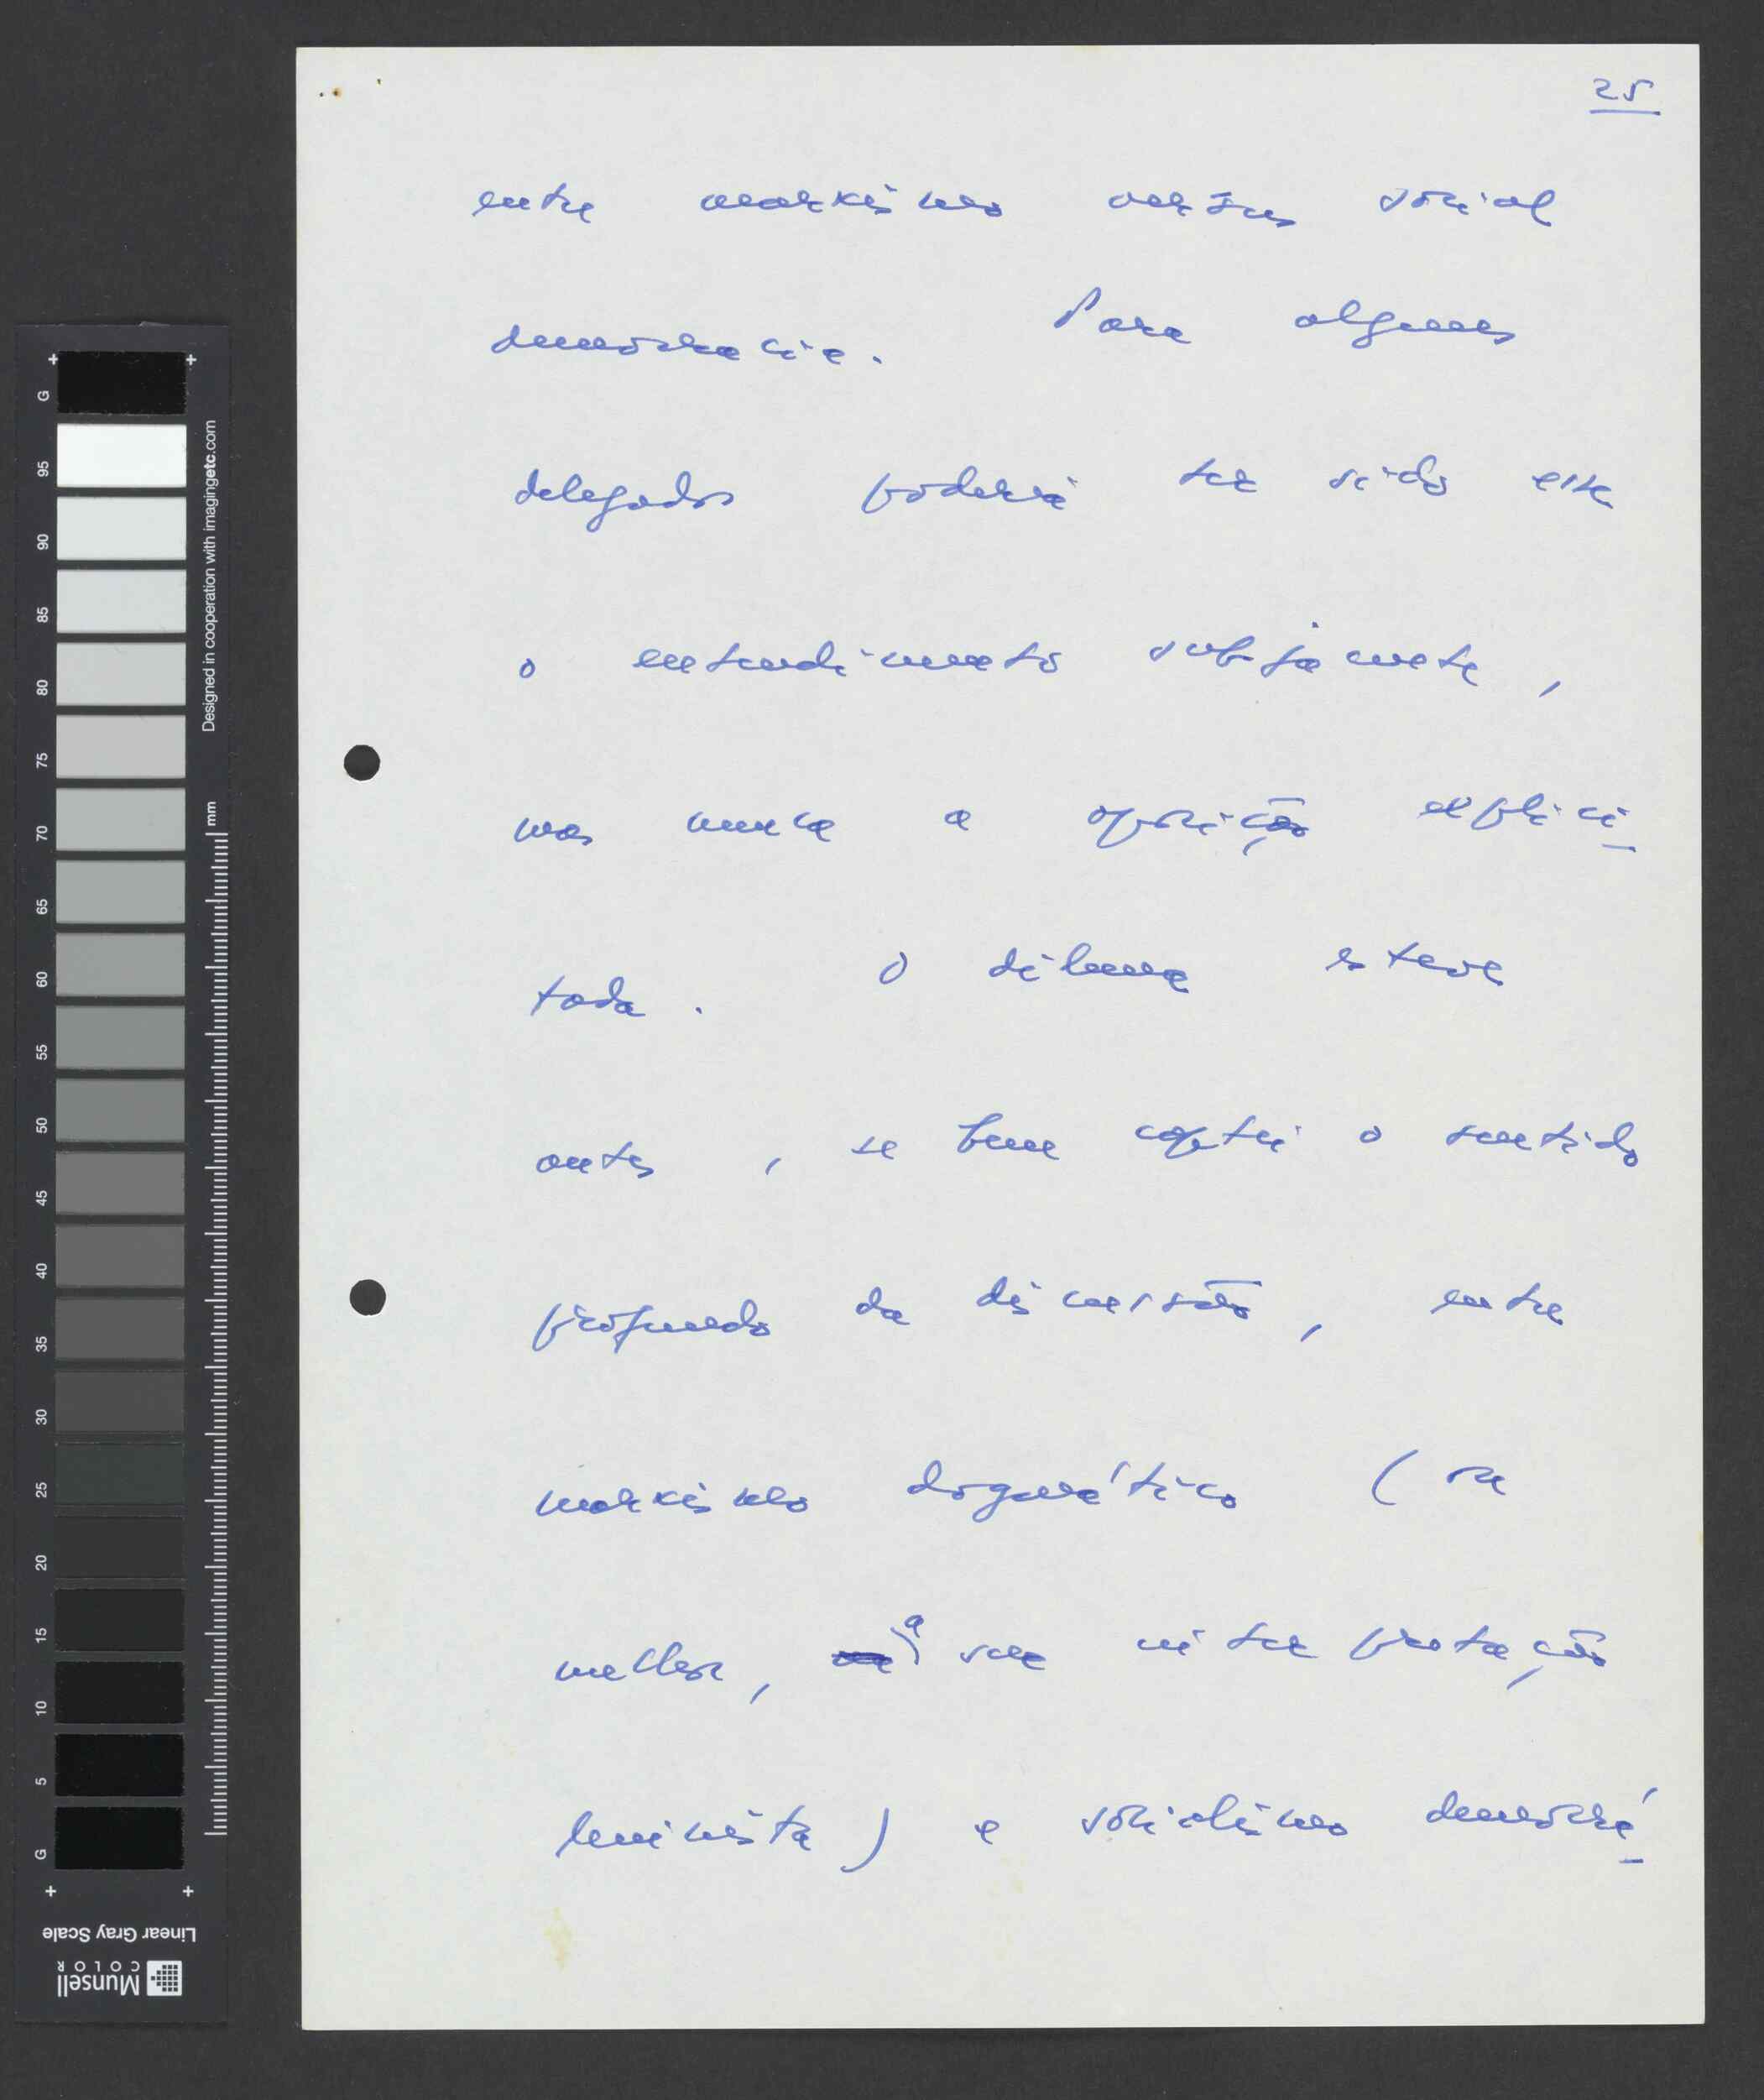 25
entre marxismo versus social
democracia. Para alguns
delegados poderá ter sido este
o entendimento subjacente,
mas nunca a oposição explici-
tada. O dilema esteve
antes, se bem captei o sentido
profundo da discussão, entre
marxismo dogmático (ou
melhor, a sua interpretação
leninista) e socialismo democrá-
G
95
90
85
80
75
70
65
60
55
50
45
40
35
30
25
20
15
10
5
G
Designed in cooperation with imagingetc.com
mm
Linear Gray Scale
Munsell
COLOR